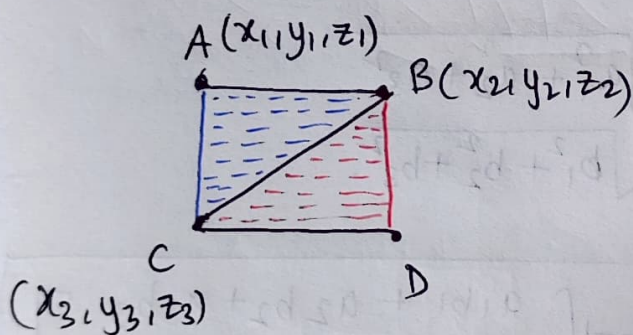 A (x1, y1, z1)
B (x2, y2, z2)
C
D
(x3, y3, z3)